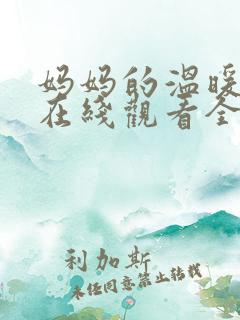 妈妈的温暖
在綫觀看全
利加斯
未经同意禁止转载